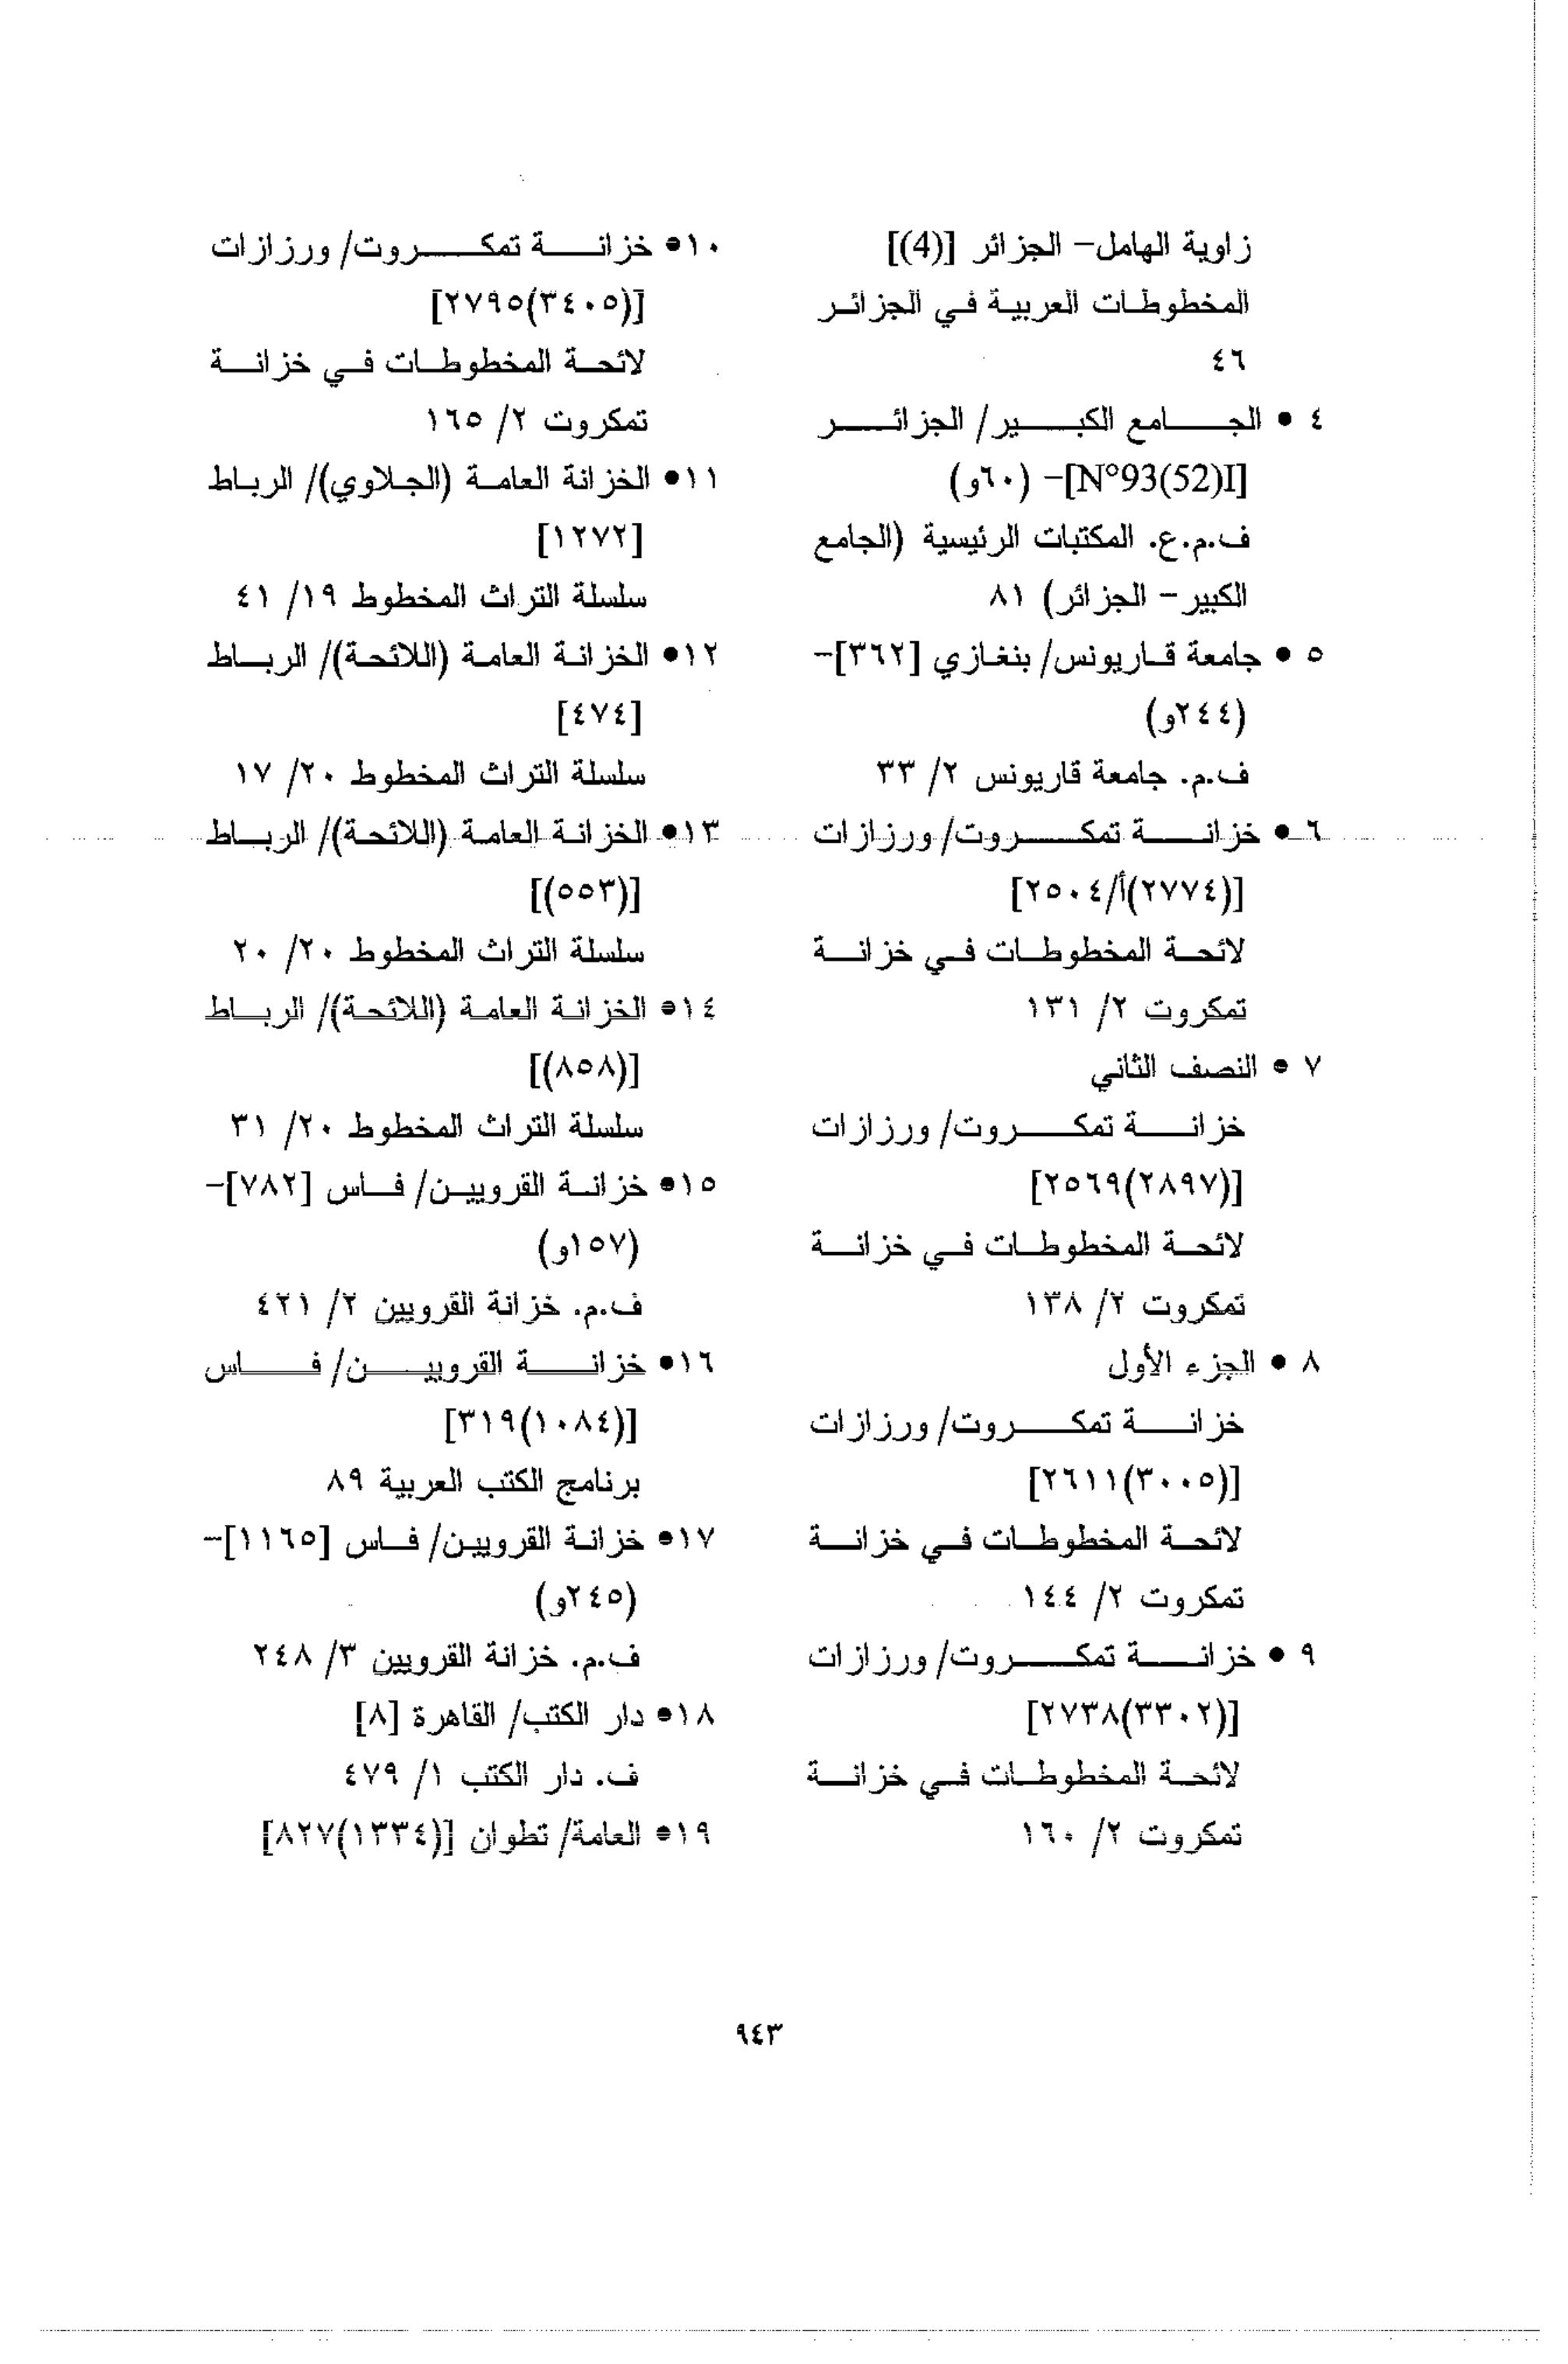 زاوية الهامل- الجزائر [(4)]
المخطوطات العربية في الجزائر
٤٦
٤ • الجامع الكبير/ الجزائر
[N°93(52)I]- (٦٠و)
ف.م.ع. المكتبات الرئيسية (الجامع
الكبير- الجزائر) ٨١
٥ • جامعة قاريونس/ بنغازي [٣٦٢]-
(٢٤٤و)
ف.م. جامعة قاريونس ٢/ ٣٣
٦ • خزانة تمكروت/ ورزازات
[(٢٧٧٤)أ/٢٥٠٤]
لائحة المخطوطات في خزانة
تمكروت ٢/ ١٣١
٧ • النصف الثاني
خزانة تمكروت/ ورزازات
[(٢٨٩٧)٢٥٦٩]
لائحة المخطوطات في خزانة
تمكروت ٢/ ١٣٨
٨ • الجزء الأول
خزانة تمكروت/ ورزازات
[(٣٠٠٥)٢٦١١]
لائحة المخطوطات في خزانة
تمكروت ٢/ ١٤٤
٩ • خزانة تمكروت/ ورزازات
[(٣٣٠٢)٢٧٣٨]
لائحة المخطوطات في خزانة
تمكروت ٢/ ١٦٠
١٠• خزانة تمكروت/ ورزازات
[(٣٤٠٥)٢٧٩٥]
لائحة المخطوطات في خزانة
تمكروت ٢/ ١٦٥
١١• الخزانة العامة (الجلاوي)/ الرباط
[١٢٧٢]
سلسلة التراث المخطوط ١٩/ ٤١
١٢• الخزانة العامة (اللائحة)/ الرباط
[٤٧٤]
سلسلة التراث المخطوط ٢٠/ ١٧
١٣• الخزانة العامة (اللائحة)/ الرباط
[(٥٥٣)]
سلسلة التراث المخطوط ٢٠/ ٢٠
١٤• الخزانة العامة (اللائحة)/ الرباط
[(٨٥٨)]
سلسلة التراث المخطوط ٢٠/ ٣١
١٥• خزانة القرويين/ فاس [٧٨٢]-
(١٥٧و)
ف.م. خزانة القرويين ٢/ ٤٢١
١٦• خزانة القرويين/ فاس
[(١٠٨٤)٣١٩]
برنامج الكتب العربية ٨٩
١٧• خزانة القرويين/ فاس [١١٦٥]-
(٢٤٥و)
ف.م. خزانة القرويين ٣/ ٢٤٨
١٨• دار الكتب/ القاهرة [٨]
ف. دار الكتب ١/ ٤٧٩
١٩• العامة/ تطوان [(١٣٣٤)٨٢٧]
٩٤٣